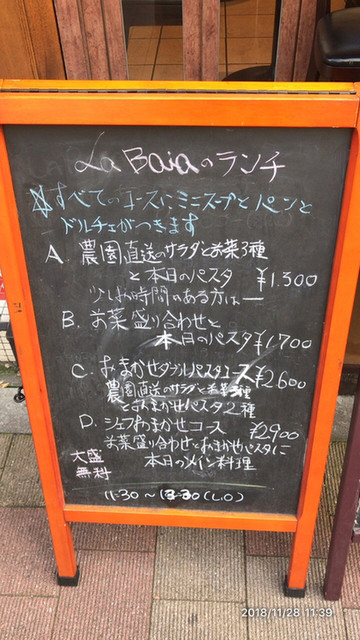 La Baiaのランチ
☆すべてのコースにミニスープとパンと
ドルチェがつきます
A. 農園直送のサラダとお菜3種
と本日のパスタ ¥1.300
少しお時間のある方は—
B. お菜盛り合わせと
本日のパスタ ¥1.700
C. おまかせダブルパスタコース ¥2.600
農園直送のサラダとお菜3種
とおまかせパスタ2種
D. シェフおまかせコース ¥2900
お菜盛り合わせとおまかせパスタに
本日のメイン料理
大盛
無料
11:30 〜 13:30 (L.O)
2018/11/28 11:39